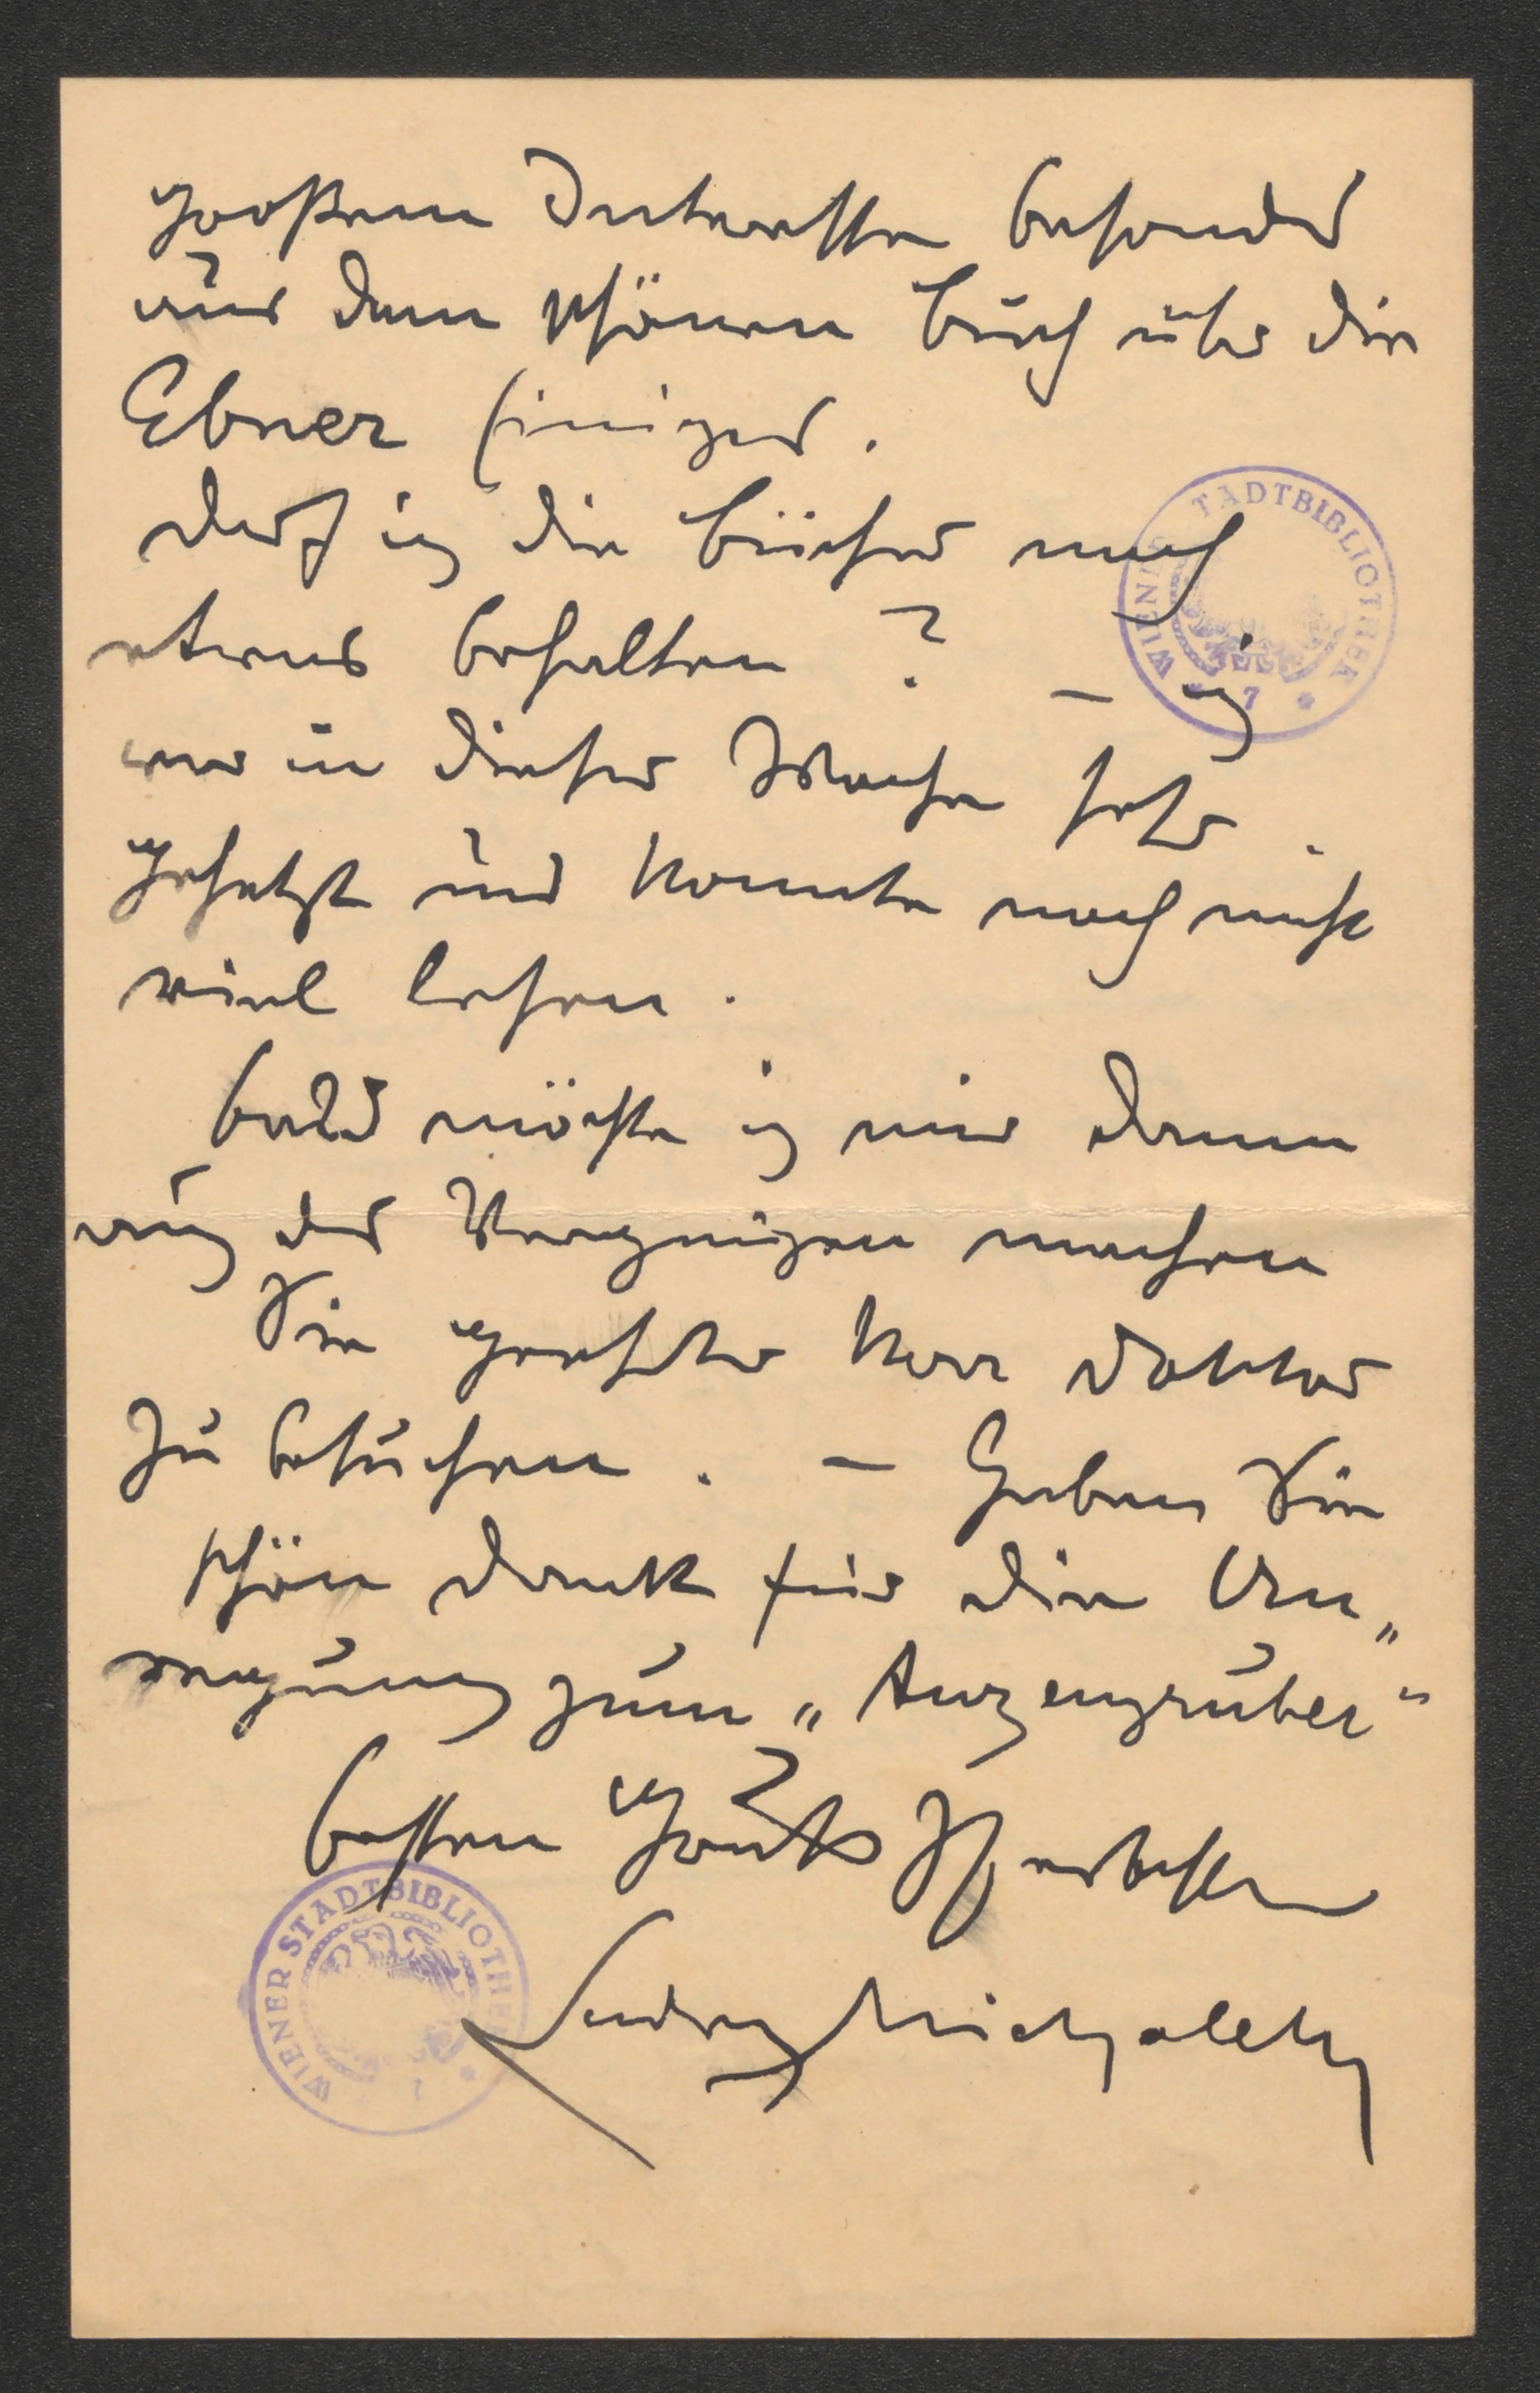 großem Interesse besonders
aus dem schönen Buch über die
Ebner einiges.
Darf ich die Bücher noch
etwas behalten? – Ich
war in dieser Woche sehr
gehetzt und konnte noch nicht
viel lesen.
Bald möchte ich mir dann
auch das Vergnügen machen
Sie geehrter Herr Doktor
zu besuchen. – Haben Sie
schön Dank für die An„
regung zum „Anzengruber“
besten Gruß Ihr ergebenster
Ludwig Michalek
WIENER STADTBIBLIOTHEK
WIENER STADTBIBLIOTHEK